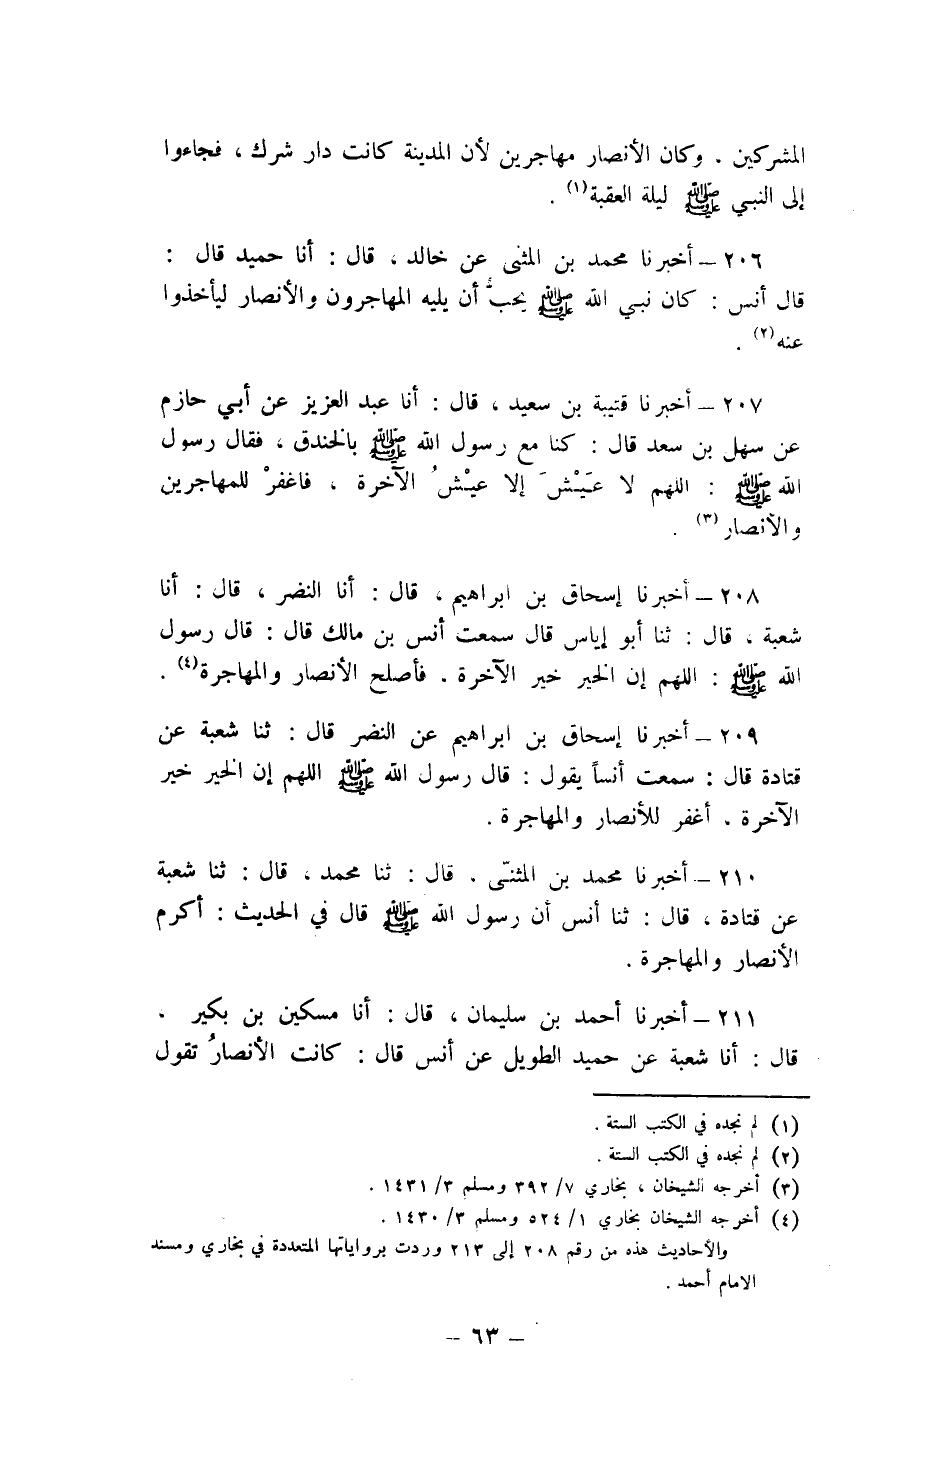 المشركين . وكان الأنصار مهاجرين لأن المدينة كانت دار شرك ، فجاءوا
إلى النبي ﷺ ليلة العقبة(١) .
٢٠٦ – أخبرنا محمد بن المثنى عن خالد ، قال : أنا حميد قال :
قال أنس : كان نبي الله ﷺ يحبُّ أن يليه المهاجرون والأنصار ليأخذوا
عنه(٢) .
٢٠٧ – أخبرنا قتيبة بن سعيد ، قال : أنا عبد العزيز عن أبي حازم
عن سهل بن سعد قال : كنا مع رسول الله ﷺ بالخندق ، فقال رسول
الله ﷺ : اللهم لا عَيْشَ إلا عيْشُ الآخرة ، فاغفرْ للمهاجرين
والأنصار(٣) .
٢٠٨ – أخبرنا إسحاق بن ابراهيم ، قال : أنا النضر ، قال : أنا
شعبة ، قال : ثنا أبو إياس قال سمعت أنس بن مالك قال : قال رسول
الله ﷺ : اللهم إن الخير خير الآخرة . فأصلح الأنصار والمهاجرة(٤) .
٢٠٩ – أخبرنا إسحاق بن ابراهيم عن النضر قال : ثنا شعبة عن
قتادة قال : سمعت أنساً يقول : قال رسول الله ﷺ اللهم إن الخير خير
الآخرة . أغفر للأنصار والمهاجرة .
٢١٠ – أخبرنا محمد بن المثنّى . قال : ثنا محمد ، قال : ثنا شعبة
عن قتادة ، قال : ثنا أنس أن رسول الله ﷺ قال في الحديث : أكرم
الأنصار والمهاجرة .
٢١١ – أخبرنا أحمد بن سليمان ، قال : أنا مسكين بن بكير .
قال : أنا شعبة عن حميد الطويل عن أنس قال : كانت الأنصارُ تقول
(١) لم نجده في الكتب الستة .
(٢) لم نجده في الكتب الستة .
(٣) أخرجه الشيخان ، بخاري ٧/ ٣٩٢ ومسلم ٣/ ١٤٣١ .
(٤) أخرجه الشيخان بخاري ١/ ٥٢٤ ومسلم ٣/ ١٤٣٠ .
والأحاديث هذه من رقم ٢٠٨ إلى ٢١٣ وردت برواياتها المتعددة في بخاري ومسند
الامام أحمد .
– ٦٣ –